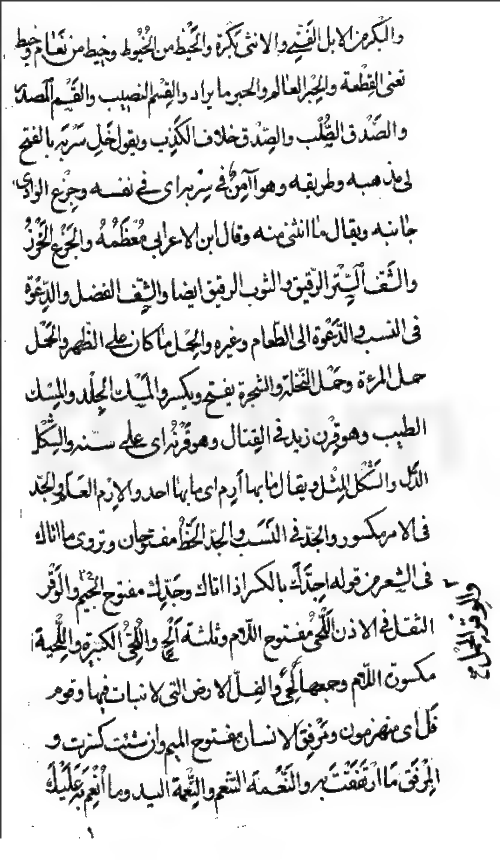 والبكر من الابل الفتي والانثى بكرة والخيط من الخيوط وخيط من نعام وخيط
تعنى القطعة والحبر العالم والحبر ما يراد والقسم النصيب والقسم المصدر
والصدق الصلب والصدق خلاف الكذب ويقول خل سربه بالفتح
اى مذهبه وطريقه وهو آمن في سربه اى في نفسه وجزع الوادى
جانبه ويقال ما انثنى منه وقال ابن الاعرابى معظمه والجزع الخرز
والشف الستر الرقيق والثوب الرقيق ايضا والشف الفضل والدعوة
فى النسب والدعوة الى الطعام وغيره والحمل ما كان على الظهر والحمل
حمل المرءة وحمل النخلة والشجرة يفتح ويكسر والمسك الجلد والمسك
الطيب وهو قرن زيد في القتال وهو قرنه اى على سنه والشكل
الدل والشكل المثل ويقال ما بها أرم اى ما بها احد والارم العلم والجد
فى الامر مكسور والجد في النسب والجد الحظ مفتوحان وتروى ما اتاك
فى الشعر من قوله اجدك بالكسر اذا اتاك وجدك مفتوح الجيم والوقر
الثقل في الاذن اللحى مفتوح اللام وثلثة ألح واللحى الكثيرة واللحية
مكسورة اللام وجمعها لحى والفل الارض التى لا نبات فيها وقوم
فل اى منهزمون ومرفق الانسان مفتوح الميم وان شئت كسرت و
المرفق ما ارتفقت به والنعمة التنعم والنعمة اليد وما أنعم به عليك
والوقر الحمل